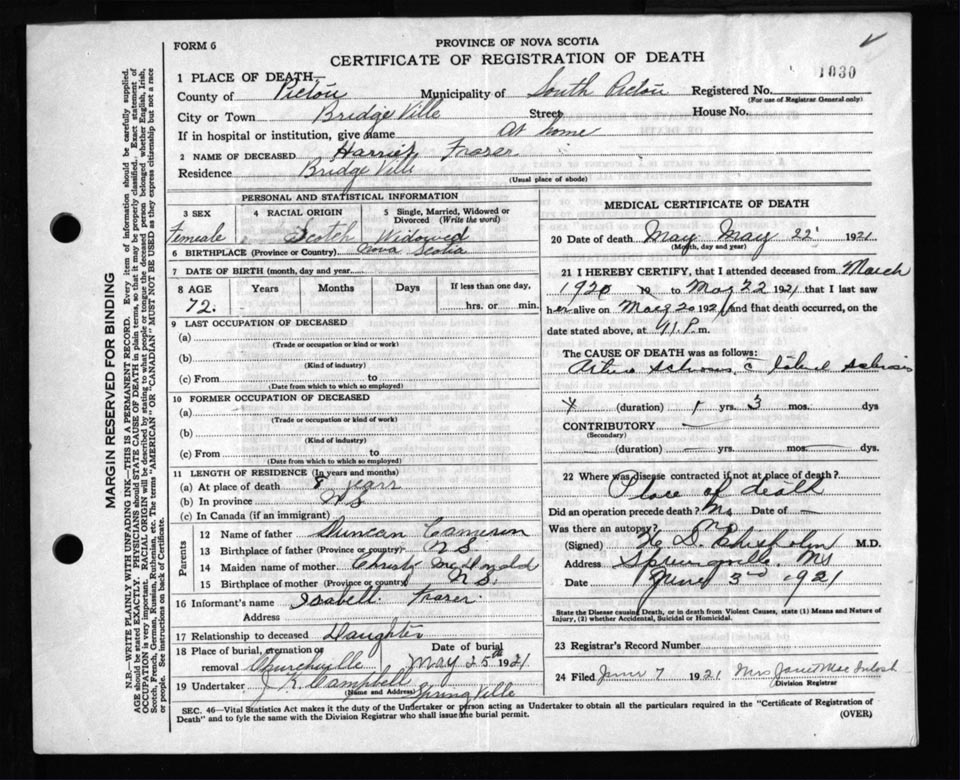 FORM 6
PROVINCE OF NOVA SCOTIA
CERTIFICATE OF REGISTRATION OF DEATH
1030
1 PLACE OF DEATH—
County of Pictou Municipality of South Pictou Registered No.
(For use of Registrar General only)
City or Town Bridge Ville Street House No.
If in hospital or institution, give name At home
2 NAME OF DECEASED Harriet Fraser
Residence Bridge Ville
(Usual place of abode)
PERSONAL AND STATISTICAL INFORMATION
3 SEX 4 RACIAL ORIGIN 5 Single, Married, Widowed or Divorced (Write the word)
Femeale Scotch Widowed
6 BIRTHPLACE (Province or Country) Nova Scotia
7 DATE OF BIRTH (month, day and year)
8 AGE Years Months Days If less than one day,
72. hrs. or min.
9 LAST OCCUPATION OF DECEASED
(a)
(Trade or occupation or kind or work)
(b)
(Kind of industry)
(c) From to
(Date from which to which so employed)
10 FORMER OCCUPATION OF DECEASED
(a)
(Trade or occupation or kind of work)
(b)
(Kind of industry)
(c) From to
(Date from which to which so employed)
11 LENGTH OF RESIDENCE (In years and months)
(a) At place of death years
(b) In province NS
(c) In Canada (if an immigrant)
Parents
12 Name of father Duncan Cameron
13 Birthplace of father (Province or country) NS
14 Maiden name of mother Christy McDonald
15 Birthplace of mother (Province or country) NS.
16 Informant's name Isabell Fraser.
Address
17 Relationship to deceased Daughter
18 Place of burial, cremation or removal Churchville Date of burial May 25th 1921
19 Undertaker J. K. Campbell
(Name and Address) Spring Ville
MEDICAL CERTIFICATE OF DEATH
20 Date of death May May 22 1921
(Month, day and year)
21 I HEREBY CERTIFY, that I attended deceased from March
1920 to May 22 1921 that I last saw
her alive on May 20 1921 and that death occurred, on
date stated above, at P.m.
The CAUSE OF DEATH was as follows:
(duration) 1 yrs. 3 mos. dys
CONTRIBUTORY
(Secondary)
(duration) yrs. mos. dys
22 Where was disease contracted if not at place of death?
Place of death
Did an operation precede death? No Date of —
Was there an autopsy? No
(Signed) H. D. Chisholm M.D.
Address Springville. NS
Date June 3rd 1921
State the Disease causing Death, or in death from Violent Causes, state (1) Means and Nature of
Injury, (2) whether Accidental, Suicidal or Homicidal.
23 Registrar's Record Number
24 Filed June 7 1921 Mrs Janie MacIntosh
Division Registrar
SEC. 46—Vital Statistics Act makes it the duty of the Undertaker or person acting as Undertaker to obtain all the particulars required in the "Certificate of Registration of
Death" and to fyle the same with the Division Registrar who shall issue the burial permit.
(OVER)
MARGIN RESERVED FOR BINDING
N.B.—WRITE PLAINLY WITH UNFADING INK—THIS IS A PERMANENT RECORD. Every item of information should be carefully supplied.
AGE should be stated EXACTLY. PHYSICIANS should STATE CAUSE OF DEATH in plain terms, so that it may be properly classified. Exact statement of
OCCUPATION is very important. RACIAL ORIGIN will be described by stating to what people or tongue the deceased person belonged whether English, Irish,
Scotch, French, German, Russian, Ruthenian, etc. The terms "AMERICAN" OR "CANADIAN" MUST NOT BE USED as they express citizenship but not a race
or people. See instructions on back of Certificate.